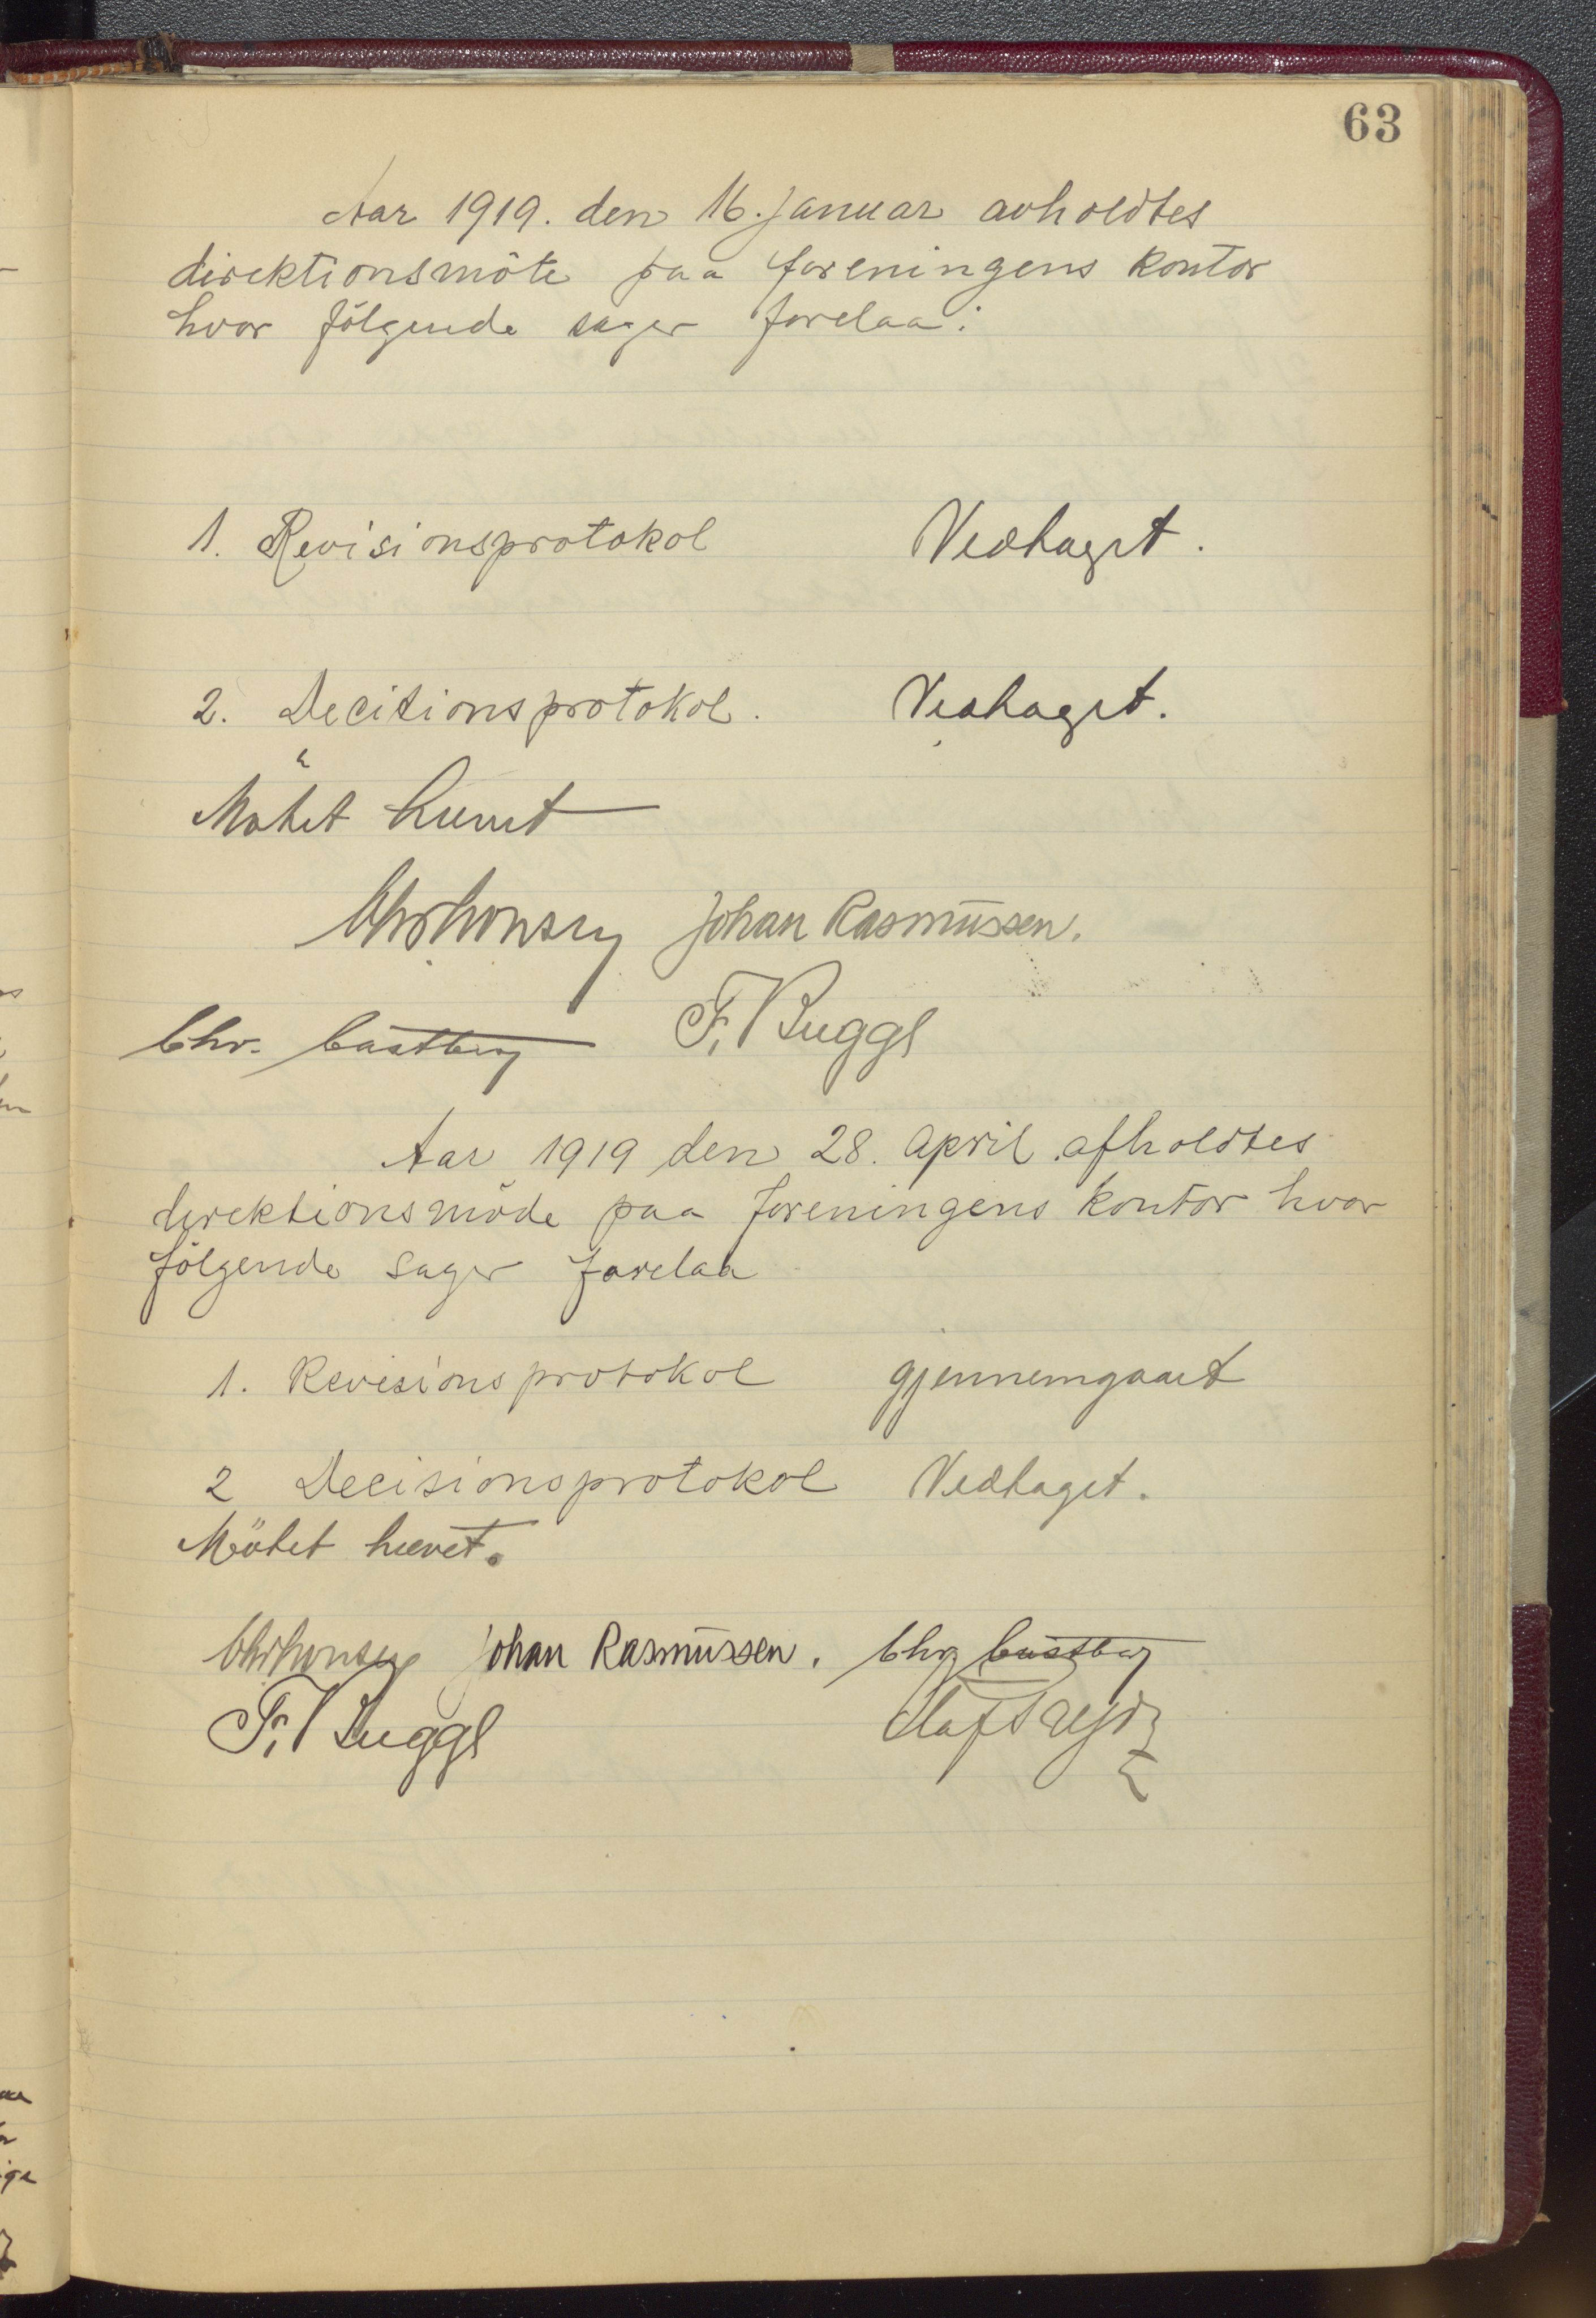 63
Aar 1919. den 16. Januar avholdtes
direktionsmöte paa foreningens kontor
hvor fölgende sager forelaa:
1. Revisionsprotokol Vedtaget.
2. Decitionsprotokol. Vedtaget.
Mötet hævet
Johan Rasmussen.
Chr. Castberg F. Bugge
Aar 1919 den 28. April afholdtes
direktionsmöde paa foreningens kontor hvor
fölgende sager forelaa
1. Revisionsprotokol gjennemgaaet
2 Decisionsprotokol Vedtaget.
Mötet hævet.
Johan Rasmussen. Chr. Castberg
F. Bugge